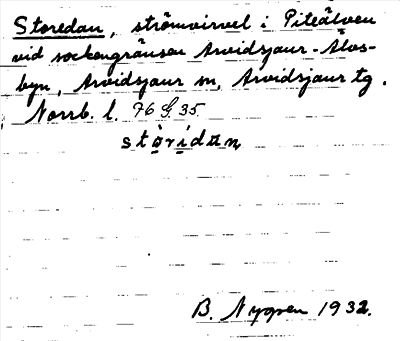 Storedan, strömvirvel i Piteälven
vid sockengränsen Arvidsjaur-Älvs-
byn, Arvidsjaur sn, Arvidsjaur tg.
Norrb. l. 76 G. 35.
stòridan
B. Nygren 1932.